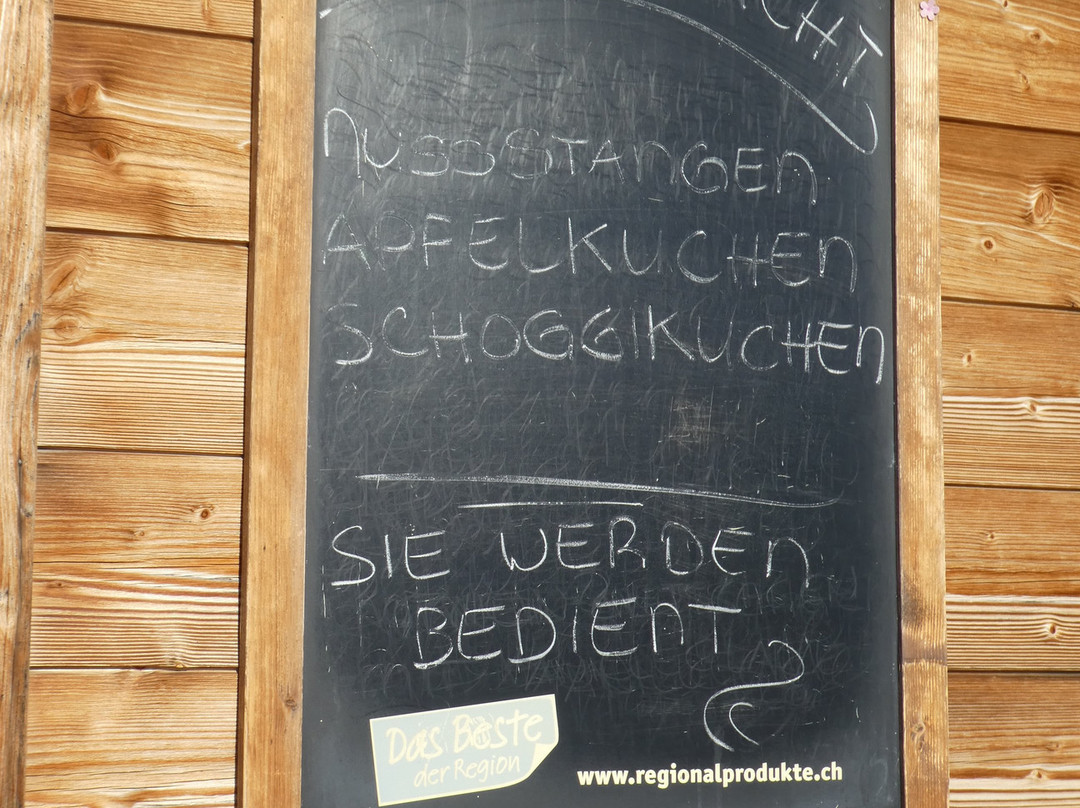 NUSSSTANGEN
APFELKUCHEN
SCHOGGIKUCHEN
SIE WERDEN
BEDIENT
Das Beste
der Region
www.regionalprodukte.ch